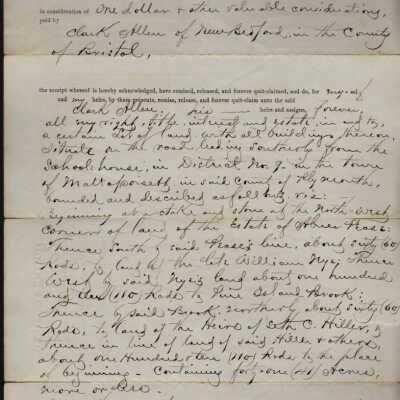 in consideration of One dollar & other valuable considerations,
paid by
Clark Allen of New Bedford, in the County
of Bristol,
the receipt whereof is hereby acknowledged, have remised, released, and forever quit-claimed, and do, for my-self
and my heirs, by these presents, remise, release, and forever quit-claim unto the said
Clark Allen, his heirs and assigns, forever,
all my right, title, interest and estate, in and to,
a certain Lot of land, with all buildings thereon,
Situate on the road leading southerly from the
Schoolhouse, in District No. 9. in the town
of Mattapoisett, in said County of Plymouth,
bounded and described as follows, viz:
Beginning at a stake and stone at the North-West
corner of land of the Estate of Pease:
Thence South by said Pease's line, about sixty (60)
Rods, to land of the late William Nye; Thence
West by said Nye's land about one hundred
and ten (110) Rods to Pine Island Brook:
Thence by said Brook, northerly about sixty (60)
Rods, to land of the Heirs of Seth C. Hiller, &
thence in line of land of said Hiller & others,
about One Hundred & ten (110) Rods to the place
of beginning. Containing forty one (41) Acres,
more or less.